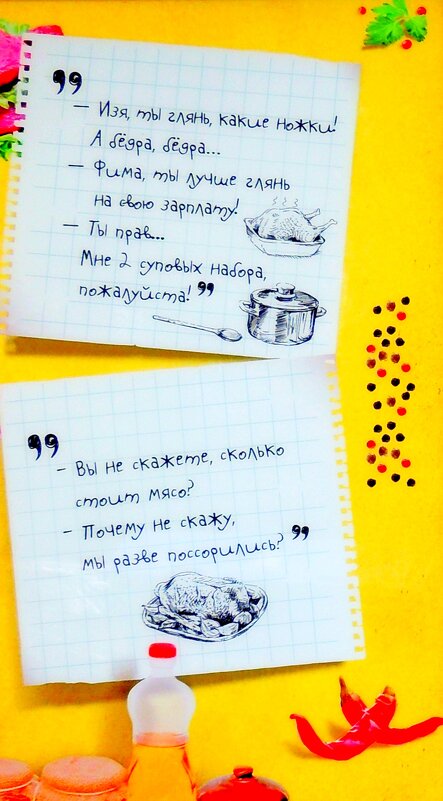 "
– Изя, ты глянь, какие ножки!
А бёдра, бёдра...
– Фима, ты лучше глянь
на свою зарплату!
– Ты прав...
Мне 2 суповых набора,
пожалуйста! "
"
– Вы не скажете, сколько
стоит мясо?
– Почему не скажу,
мы разве поссорились? "